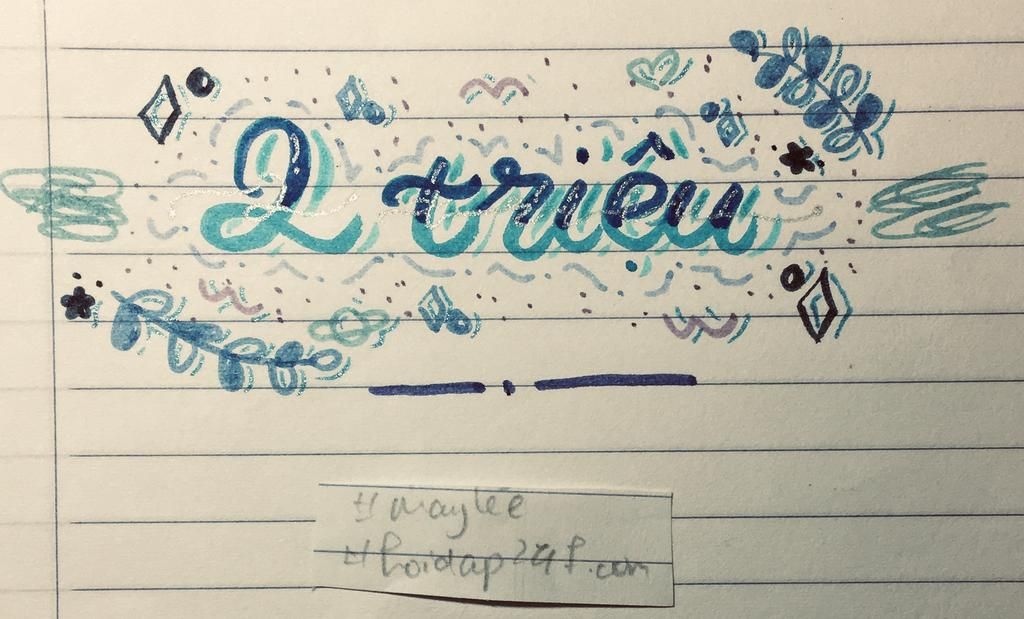 2 triệu
#maylee
#hoidap247.com